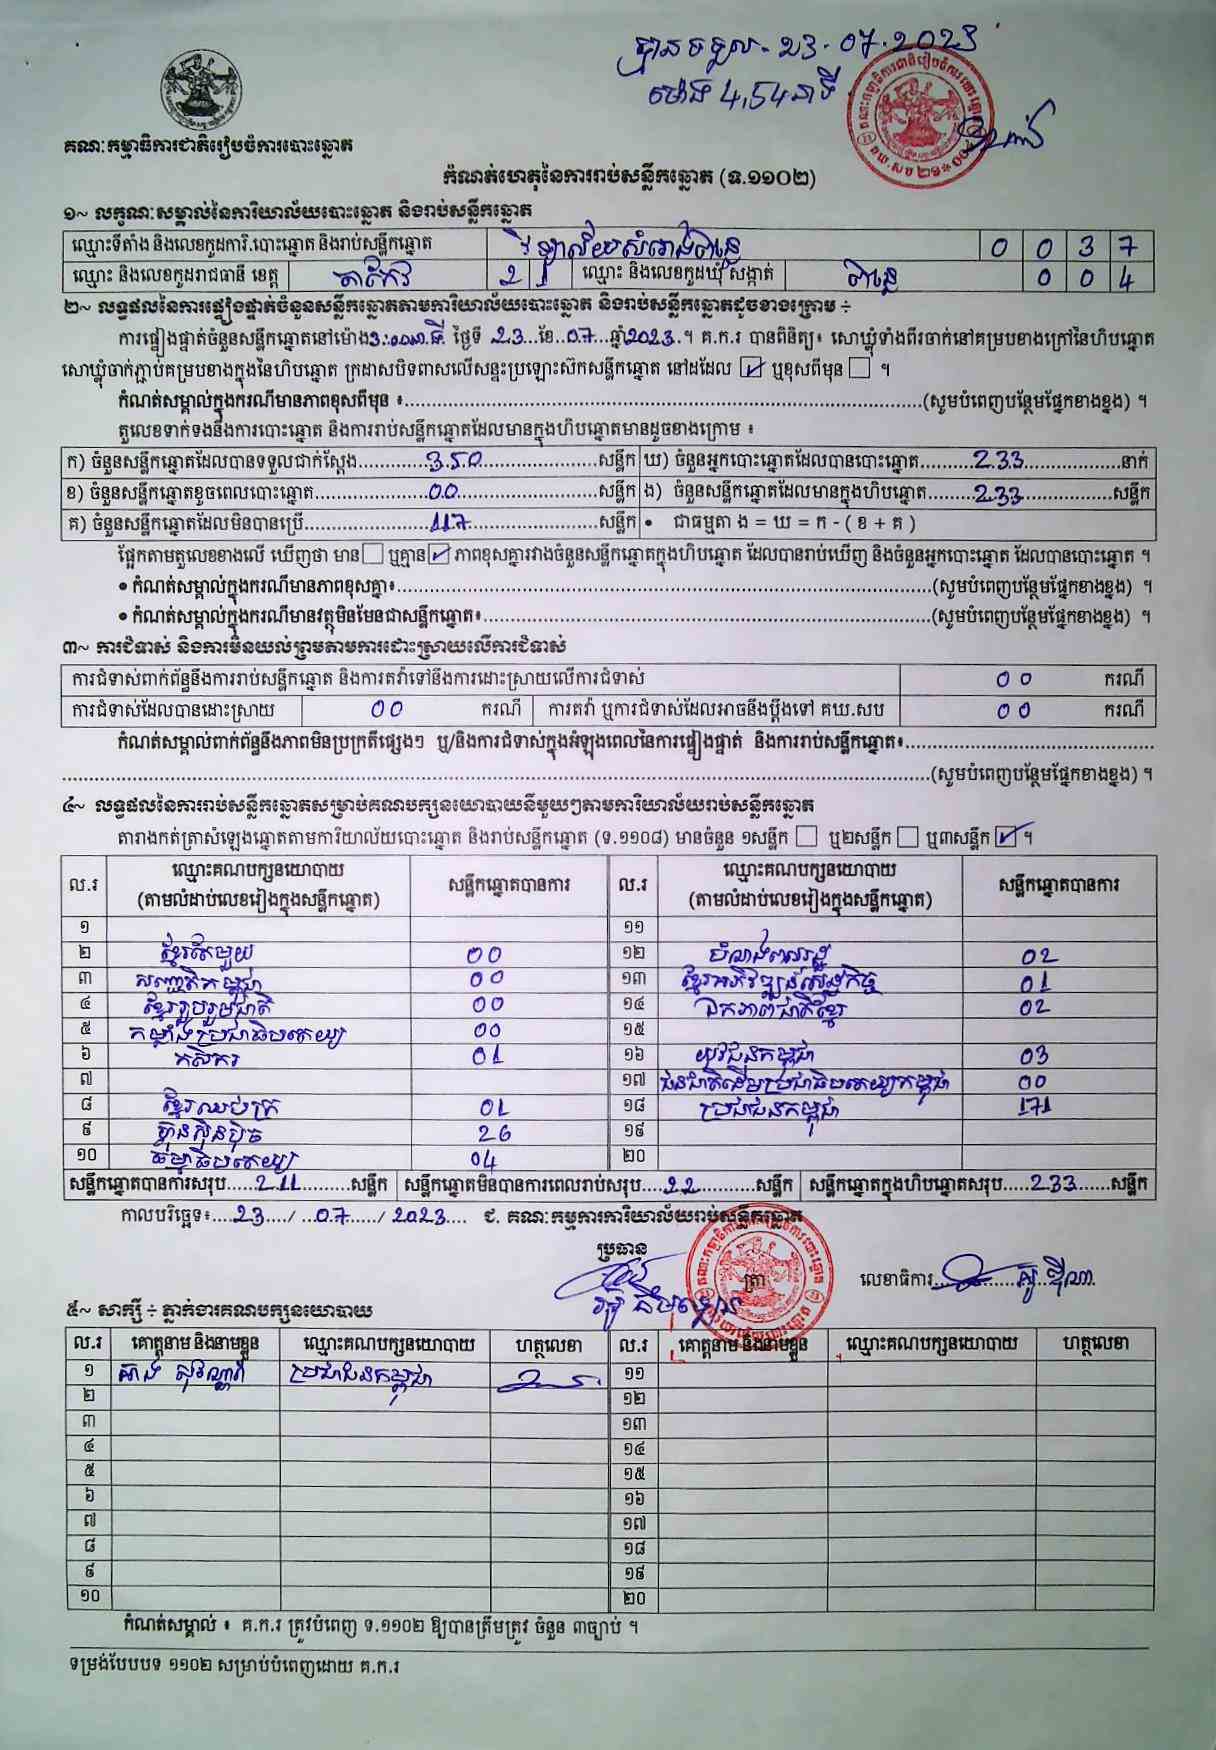 បានទទួល - 23-07-2023
ម៉ោង 4,54 នាទី
គណៈកម្មាធិការជាតិរៀបចំការបោះឆ្នោត
កំណត់ហេតុនៃការរាប់សន្លឹកឆ្នោត (ទ.១១០២)
១~ លក្ខណៈសម្គាល់នៃការិយាល័យបោះឆ្នោត និងរាប់សន្លឹកឆ្នោត
ឈ្មោះទីតាំង និងលេខកូដការិ.បោះឆ្នោត និងរាប់សន្លឹកឆ្នោត 0 0 3 7
ឈ្មោះ និងលេខកូដរាជធានី ខេត្ត តាកែវ 2 1 ឈ្មោះ និងលេខកូដឃុំ សង្កាត់ 0 0 4
២~ លទ្ធផលនៃការផ្ទៀងផ្ទាត់ចំនួនសន្លឹកឆ្នោតតាមការិយាល័យបោះឆ្នោត និងរាប់សន្លឹកឆ្នោតដូចខាងក្រោម ÷
ការផ្ទៀងផ្ទាត់ចំនួនសន្លឹកឆ្នោតនៅម៉ោង ថ្ងៃទី 23 ខែ 07 ឆ្នាំ 2023 ។ គ.ក.រ បានពិនិត្យ៖ សោឃ្លុំទាំងពីរចាក់នៅគម្របខាងក្រៅនៃហិបឆ្នោត
សោឃ្លុំចាក់ភ្ជាប់គម្របខាងក្នុងនៃហិបឆ្នោត ក្រដាសបិទពាសលើសន្ទះប្រឡោះស៊កសន្លឹកឆ្នោត នៅដដែល ☑ ឬខុសពីមុន ☐ ។
កំណត់សម្គាល់ក្នុងករណីមានភាពខុសពីមុន ៖..........(សូមបំពេញបន្ថែមផ្នែកខាងខ្នង) ។
តួលេខទាក់ទងនឹងការបោះឆ្នោត និងការរាប់សន្លឹកឆ្នោតដែលមានក្នុងហិបឆ្នោតមានដូចខាងក្រោម ៖
ក) ចំនួនសន្លឹកឆ្នោតដែលបានទទួលជាក់ស្តែង.....350.....សន្លឹក ឃ) ចំនួនអ្នកបោះឆ្នោតដែលបានបោះឆ្នោត.....233.....នាក់
ខ) ចំនួនសន្លឹកឆ្នោតខូចពេលបោះឆ្នោត.....00.....សន្លឹក ង) ចំនួនសន្លឹកឆ្នោតដែលមានក្នុងហិបឆ្នោត.....233.....សន្លឹក
គ) ចំនួនសន្លឹកឆ្នោតដែលមិនបានប្រើ.....117.....សន្លឹក • ជាធម្មតា ង = ឃ = ក - ( ខ + គ )
ផ្អែកតាមតួលេខខាងលើ ឃើញថា មាន ☐ ឬគ្មាន ☑ ភាពខុសគ្នារវាងចំនួនសន្លឹកឆ្នោតក្នុងហិបឆ្នោត ដែលបានរាប់ឃើញ និងចំនួនអ្នកបោះឆ្នោត ដែលបានបោះឆ្នោត ។
• កំណត់សម្គាល់ក្នុងករណីមានភាពខុសគ្នា៖..........(សូមបំពេញបន្ថែមផ្នែកខាងខ្នង) ។
• កំណត់សម្គាល់ក្នុងករណីមានវត្ថុមិនមែនជាសន្លឹកឆ្នោត៖..........(សូមបំពេញបន្ថែមផ្នែកខាងខ្នង) ។
៣~ ការជំទាស់ និងការមិនយល់ព្រមតាមការដោះស្រាយលើការជំទាស់
ការជំទាស់ពាក់ព័ន្ធនឹងការរាប់សន្លឹកឆ្នោត និងការតវ៉ាទៅនឹងការដោះស្រាយលើការជំទាស់ 00 ករណី
ការជំទាស់ដែលបានដោះស្រាយ 00 ករណី ការតវ៉ា ឬការជំទាស់ដែលអាចនឹងប្តឹងទៅ គឃ.សប 00 ករណី
កំណត់សម្គាល់ពាក់ព័ន្ធនឹងភាពមិនប្រក្រតីផ្សេងៗ ឬ/និងការជំទាស់ក្នុងអំឡុងពេលនៃការផ្ទៀងផ្ទាត់ និងការរាប់សន្លឹកឆ្នោត៖..........
..........(សូមបំពេញបន្ថែមផ្នែកខាងខ្នង) ។
៤~ លទ្ធផលនៃការរាប់សន្លឹកឆ្នោតសម្រាប់គណបក្សនយោបាយនីមួយៗតាមការិយាល័យរាប់សន្លឹកឆ្នោត
តារាងកត់ត្រាសំឡេងឆ្នោតតាមការិយាល័យបោះឆ្នោត និងរាប់សន្លឹកឆ្នោត (ទ.១១០៨) មានចំនួន ១សន្លឹក ☐ ឬ២សន្លឹក ☐ ឬ៣សន្លឹក ☑ ។
ល.រ ឈ្មោះគណបក្សនយោបាយ សន្លឹកឆ្នោតបានការ ល.រ ឈ្មោះគណបក្សនយោបាយ សន្លឹកឆ្នោតបានការ
(តាមលំដាប់លេខរៀងក្នុងសន្លឹកឆ្នោត) (តាមលំដាប់លេខរៀងក្នុងសន្លឹកឆ្នោត)
១ ១១
២ ខ្មែរតែមួយ 00 ១២ 02
៣ សញ្ជាតិកម្ពុជា 00 ១៣ ខ្មែរអភិវឌ្ឍន៍សេដ្ឋកិច្ច 01
៤ ខ្មែររួបរួមជាតិ 00 ១៤ ឯកភាពជាតិខ្មែរ 02
៥ កម្លាំងប្រជាធិបតេយ្យ 00 ១៥
៦ កសិករ 01 ១៦ យុវជនកម្ពុជា 03
៧ ១៧ ជនជាតិដើមប្រជាធិបតេយ្យកម្ពុជា 00
៨ ខ្មែរឈប់ក្រ 01 ១៨ ប្រជាជនកម្ពុជា 171
៩ ហ្វ៊ុនស៊ិនប៉ិច 26 ១៩
១០ ធម្មាធិបតេយ្យ 04 ២០
សន្លឹកឆ្នោតបានការសរុប.....211.....សន្លឹក សន្លឹកឆ្នោតមិនបានការពេលរាប់សរុប.....22.....សន្លឹក សន្លឹកឆ្នោតក្នុងហិបឆ្នោតសរុប.....233.....សន្លឹក
កាលបរិច្ឆេទ៖....23..../...07...../ 2023.... ជ. គណៈកម្មការការិយាល័យរាប់សន្លឹកឆ្នោត
ប្រធាន
ត្រា
លេខាធិការ
៥~ សាក្សី ÷ ភ្នាក់ងារគណបក្សនយោបាយ
ល.រ គោត្តនាម និងនាមខ្លួន ឈ្មោះគណបក្សនយោបាយ ហត្ថលេខា ល.រ គោត្តនាម និងនាមខ្លួន ឈ្មោះគណបក្សនយោបាយ ហត្ថលេខា
១ ប្រជាជនកម្ពុជា ១១
២ ១២
៣ ១៣
៤ ១៤
៥ ១៥
៦ ១៦
៧ ១៧
៨ ១៨
៩ ១៩
១០ ២០
កំណត់សម្គាល់ ៖ គ.ក.រ ត្រូវបំពេញ ទ.១១០២ ឱ្យបានត្រឹមត្រូវ ចំនួន ៣ច្បាប់ ។
ទម្រង់បែបបទ ១១០២ សម្រាប់បំពេញដោយ គ.ក.រ